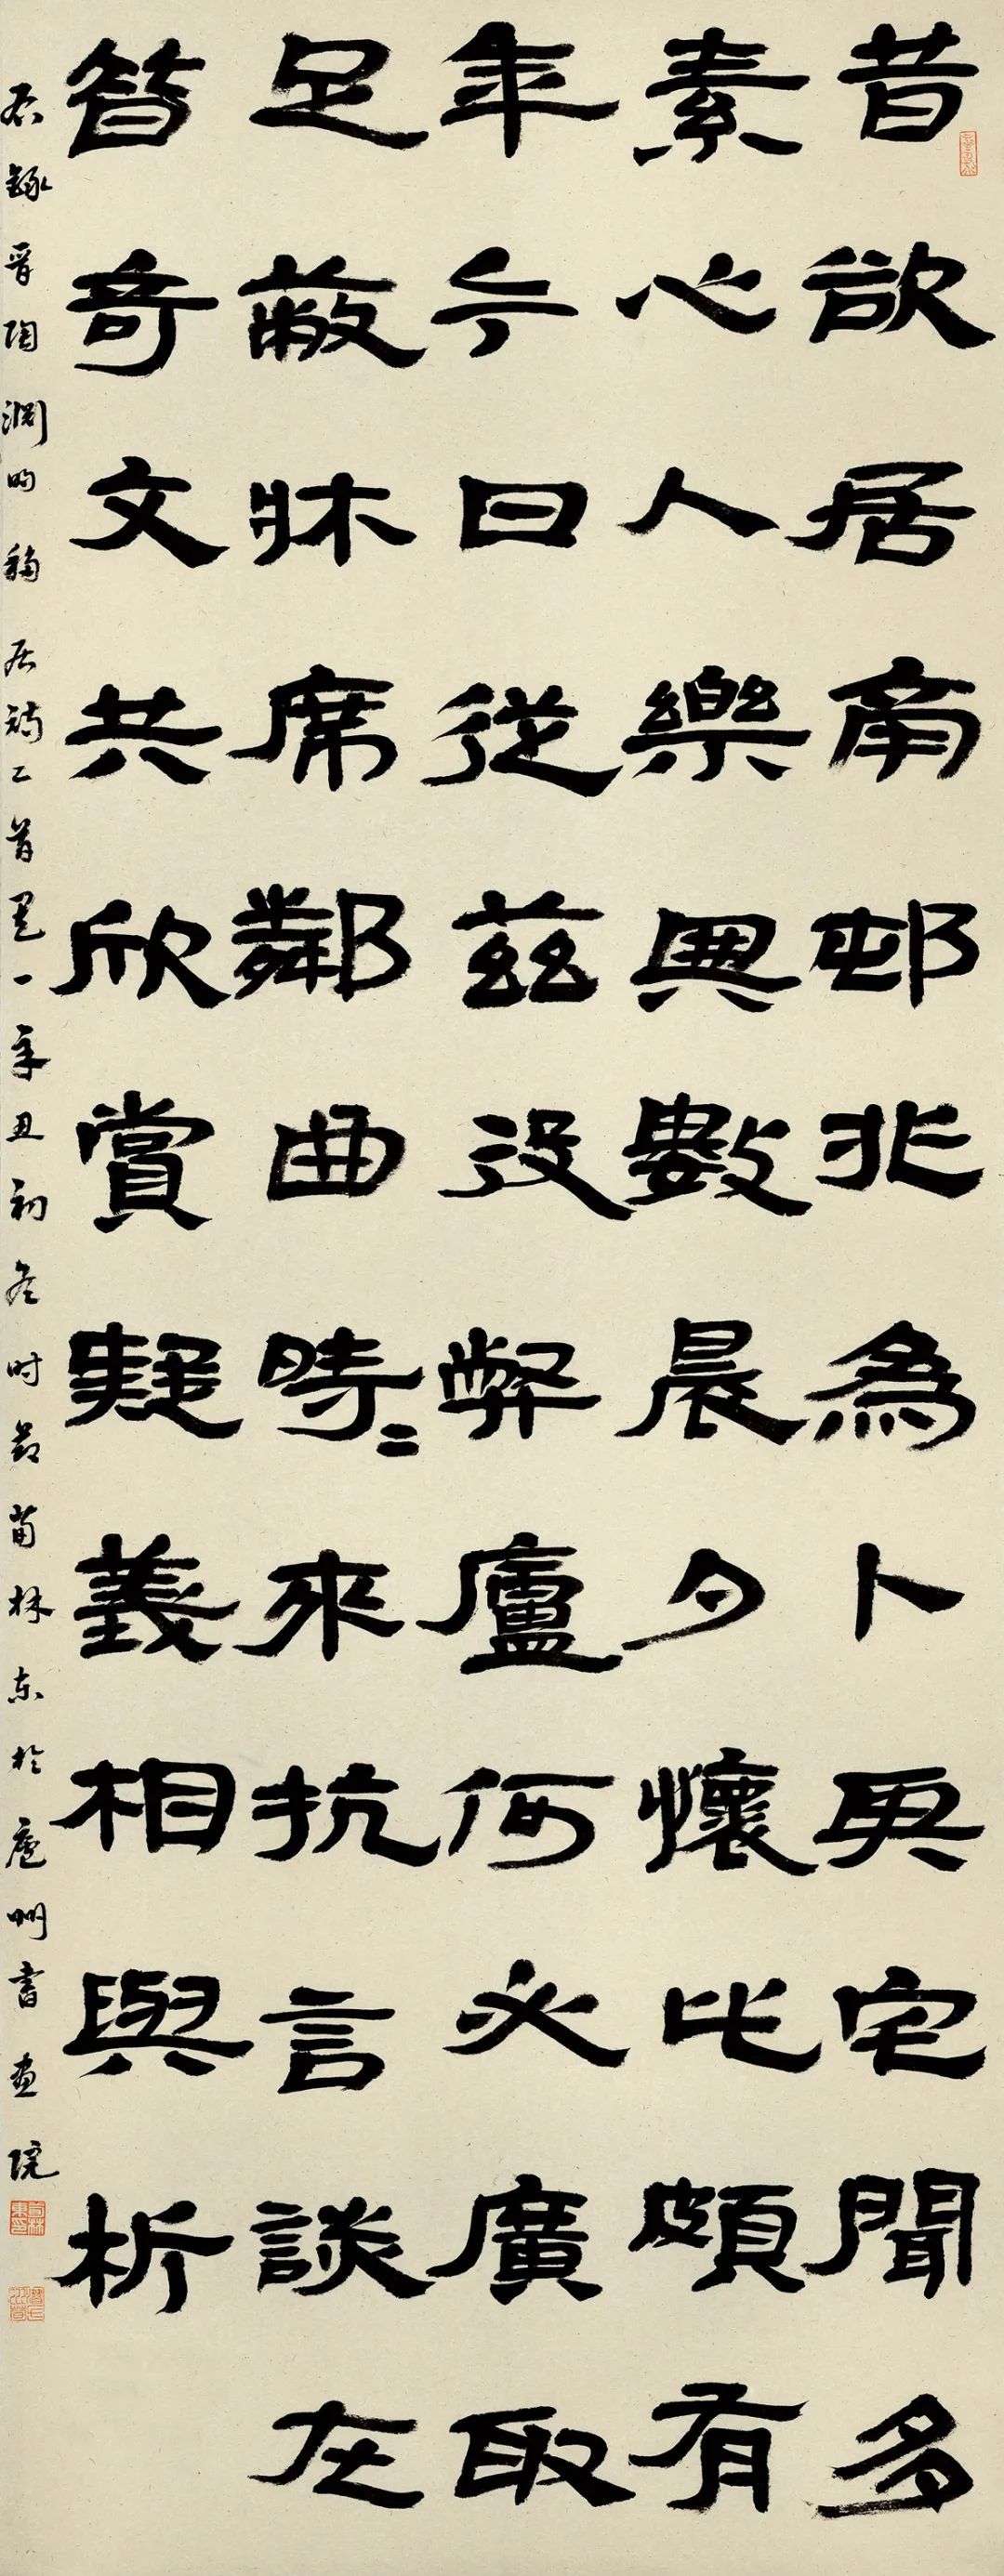 昔欲居南邨非為卜其宅聞多
素心人樂與數晨夕懷此頗有
年今日從茲役弊廬何必廣取
足蔽牀席鄰曲時〻來抗言談在
昔奇文共欣賞疑義相與析
右錄晉陶淵明移居詩二首其一辛丑初冬时節苗林东於廬州書畫院